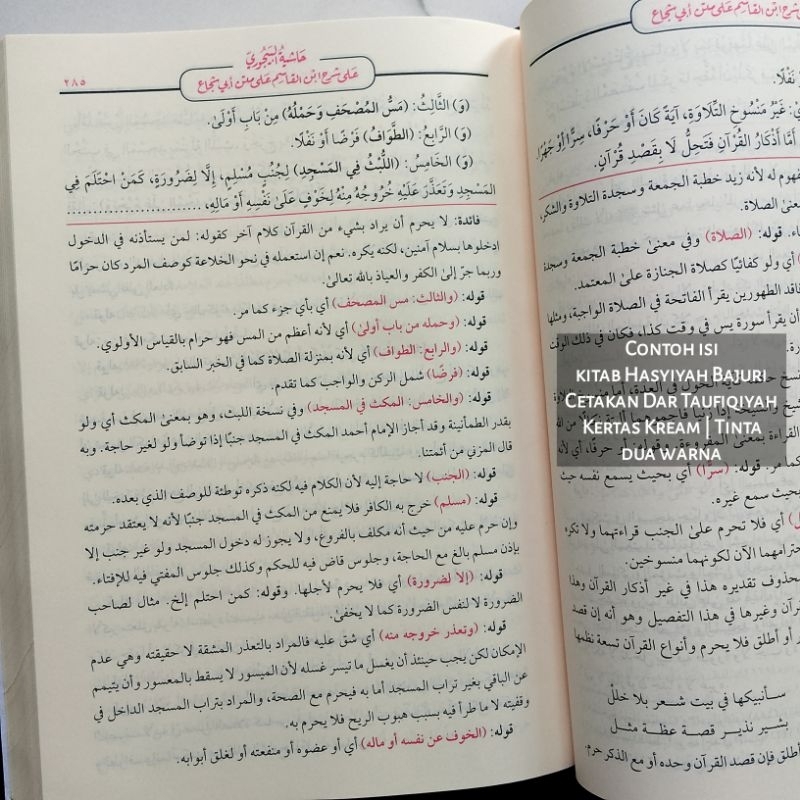 حَاشِيَةُ البَيْجُورِيّ
عَلى شَرْح ابْن القَاسِم عَلى مَتْن أَبي شُجَاع
٢٨٥
(وَ) الثَّالِثُ: (مَسُّ المُصْحَفِ وَحَمْلُهُ) مِنْ بَابِ أَوْلَىٰ.
(وَ) الرَّابِعُ: (الطَّوَافُ) فَرْضًا أَوْ نَفْلًا.
(وَ) الخَامِسُ: (اللُّبْثُ فِي المَسْجِدِ) لِجُنُبٍ مُسْلِمٍ، إِلَّا لِضَرُورَةٍ، كَمَنْ احْتَلَمَ فِي
المَسْجِدِ وَتَعَذَّرَ عَلَيْهِ خُرُوجُهُ مِنْهُ لِخَوْفٍ عَلَىٰ نَفْسِهِ أَوْ مَالِهِ، ........................
فائدة: لا يحرم أن يراد بشيء من القرآن كلام آخر كقوله: لمن يستأذنه في الدخول
ادخلوها بسلام آمنين، لكنه يكره. نعم إن استعمله في نحو الخلاعة كوصف المرد كان حرامًا
وربما جرّ إلىٰ الكفر والعياذ بالله تعالىٰ.
قوله: (والثالث: مس المصحف) أي بأي جزء كما مر.
قوله: (وحمله من باب أولىٰ) أي لأنه أعظم من المس فهو حرام بالقياس الأولوي.
قوله: (والرابع: الطواف) أي لأنه بمنزلة الصلاة كما في الخبر السابق.
قوله: (فرضًا) شمل الركن والواجب كما تقدم.
قوله: (والخامس: المكث في المسجد) وفي نسخة اللبث، وهو بمعنىٰ المكث أي ولو
بقدر الطمأنينة وقد أجاز الإمام أحمد المكث في المسجد جنبًا إذا توضأ ولو لغير حاجة. وبه
قال المزني من أئمتنا.
قوله: (الجنب) لا حاجة إليه لأن الكلام فيه لكنه ذكره توطئة للوصف الذي بعده.
قوله: (مسلم) خرج به الكافر فلا يمنع من المكث في المسجد جنبًا لأنه لا يعتقد حرمته
وإن حرم عليه من حيث أنه مكلف بالفروع، ولا يجوز له دخول المسجد ولو غير جنب إلا
بإذن مسلم بالغ مع الحاجة، وجلوس قاض فيه للحكم وكذلك جلوس المفتي فيه للإفتاء.
قوله: (إلا لضرورة) أي فلا يحرم لأجلها. وقوله: كمن احتلم إلخ. مثال لصاحب
الضرورة لا لنفس الضرورة كما لا يخفىٰ.
قوله: (وتعذر خروجه منه) أي شق عليه فالمراد بالتعذر المشقة لا حقيقته وهي عدم
الإمكان لكن يجب حينئذ أن يغسل ما تيسر غسله لأن الميسور لا يسقط بالمعسور وأن يتيمم
عن الباقي بغير تراب المسجد أما به فيحرم مع الصحة، والمراد بتراب المسجد الداخل في
وقفيته لا ما طرأ فيه بسبب هبوب الريح فلا يحرم به.
قوله: (الخوف عن نفسه أو ماله) أي أو عضوه أو منفعته أو لغلق أبوابه.
شَرْح ابْن القَاسِم عَلى مَتْن أَبي شُجَاع
نَفْلًا.
غَيْرُ مَنْسُوخِ التِّلَاوَةِ، آيَةً كَانَ أَوْ حَرْفًا، سِرًّا أَوْ جَهْرًا
أَمَّا أَذْكَارُ القُرْآنِ فَتَحِلُّ لَا بِقَصْدِ قُرْآنٍ.
مفهوم له لأنه زيد خطبة الجمعة وسجدة التلاوة والشكر،
معنىٰ الصلاة.
قوله: (الصلاة) وفي معنىٰ خطبة الجمعة وسجدة
أي ولو كفائيًا كصلاة الجنازة علىٰ المعتمد.
فاقد الطهورين يقرأ الفاتحة في الصلاة الواجبة، ومثلها
أن يقرأ سورة يس في وقت كذا، فكان في ذلك الوقت
CONTOH ISI
KITAB HASYIYAH BAJURI
CETAKAN DAR TAUFIQIYAH
KERTAS KREAM | TINTA
DUA WARNA
كما مر. قوله: (سرًّا) أي بحيث يسمع نفسه حيث
بحيث سمع غيره.
أي فلا تحرم علىٰ الجنب قراءتهما ولا تكره
احترامهما الآن لكونهما منسوخين.
محذوف تقديره هذا في غير أذكار القرآن وهذا
القرآن وغيرها في هذا التفصيل وهو أنه إن قصد
أو أطلق فلا يحرم وأنواع القرآن تسعة نظمها
سأنبيكها في بيت شعر بلا خلل
بشير نذير قصة عظة مثل
أطلق فإن قصد القرآن وحده أو مع الذكر حرم.